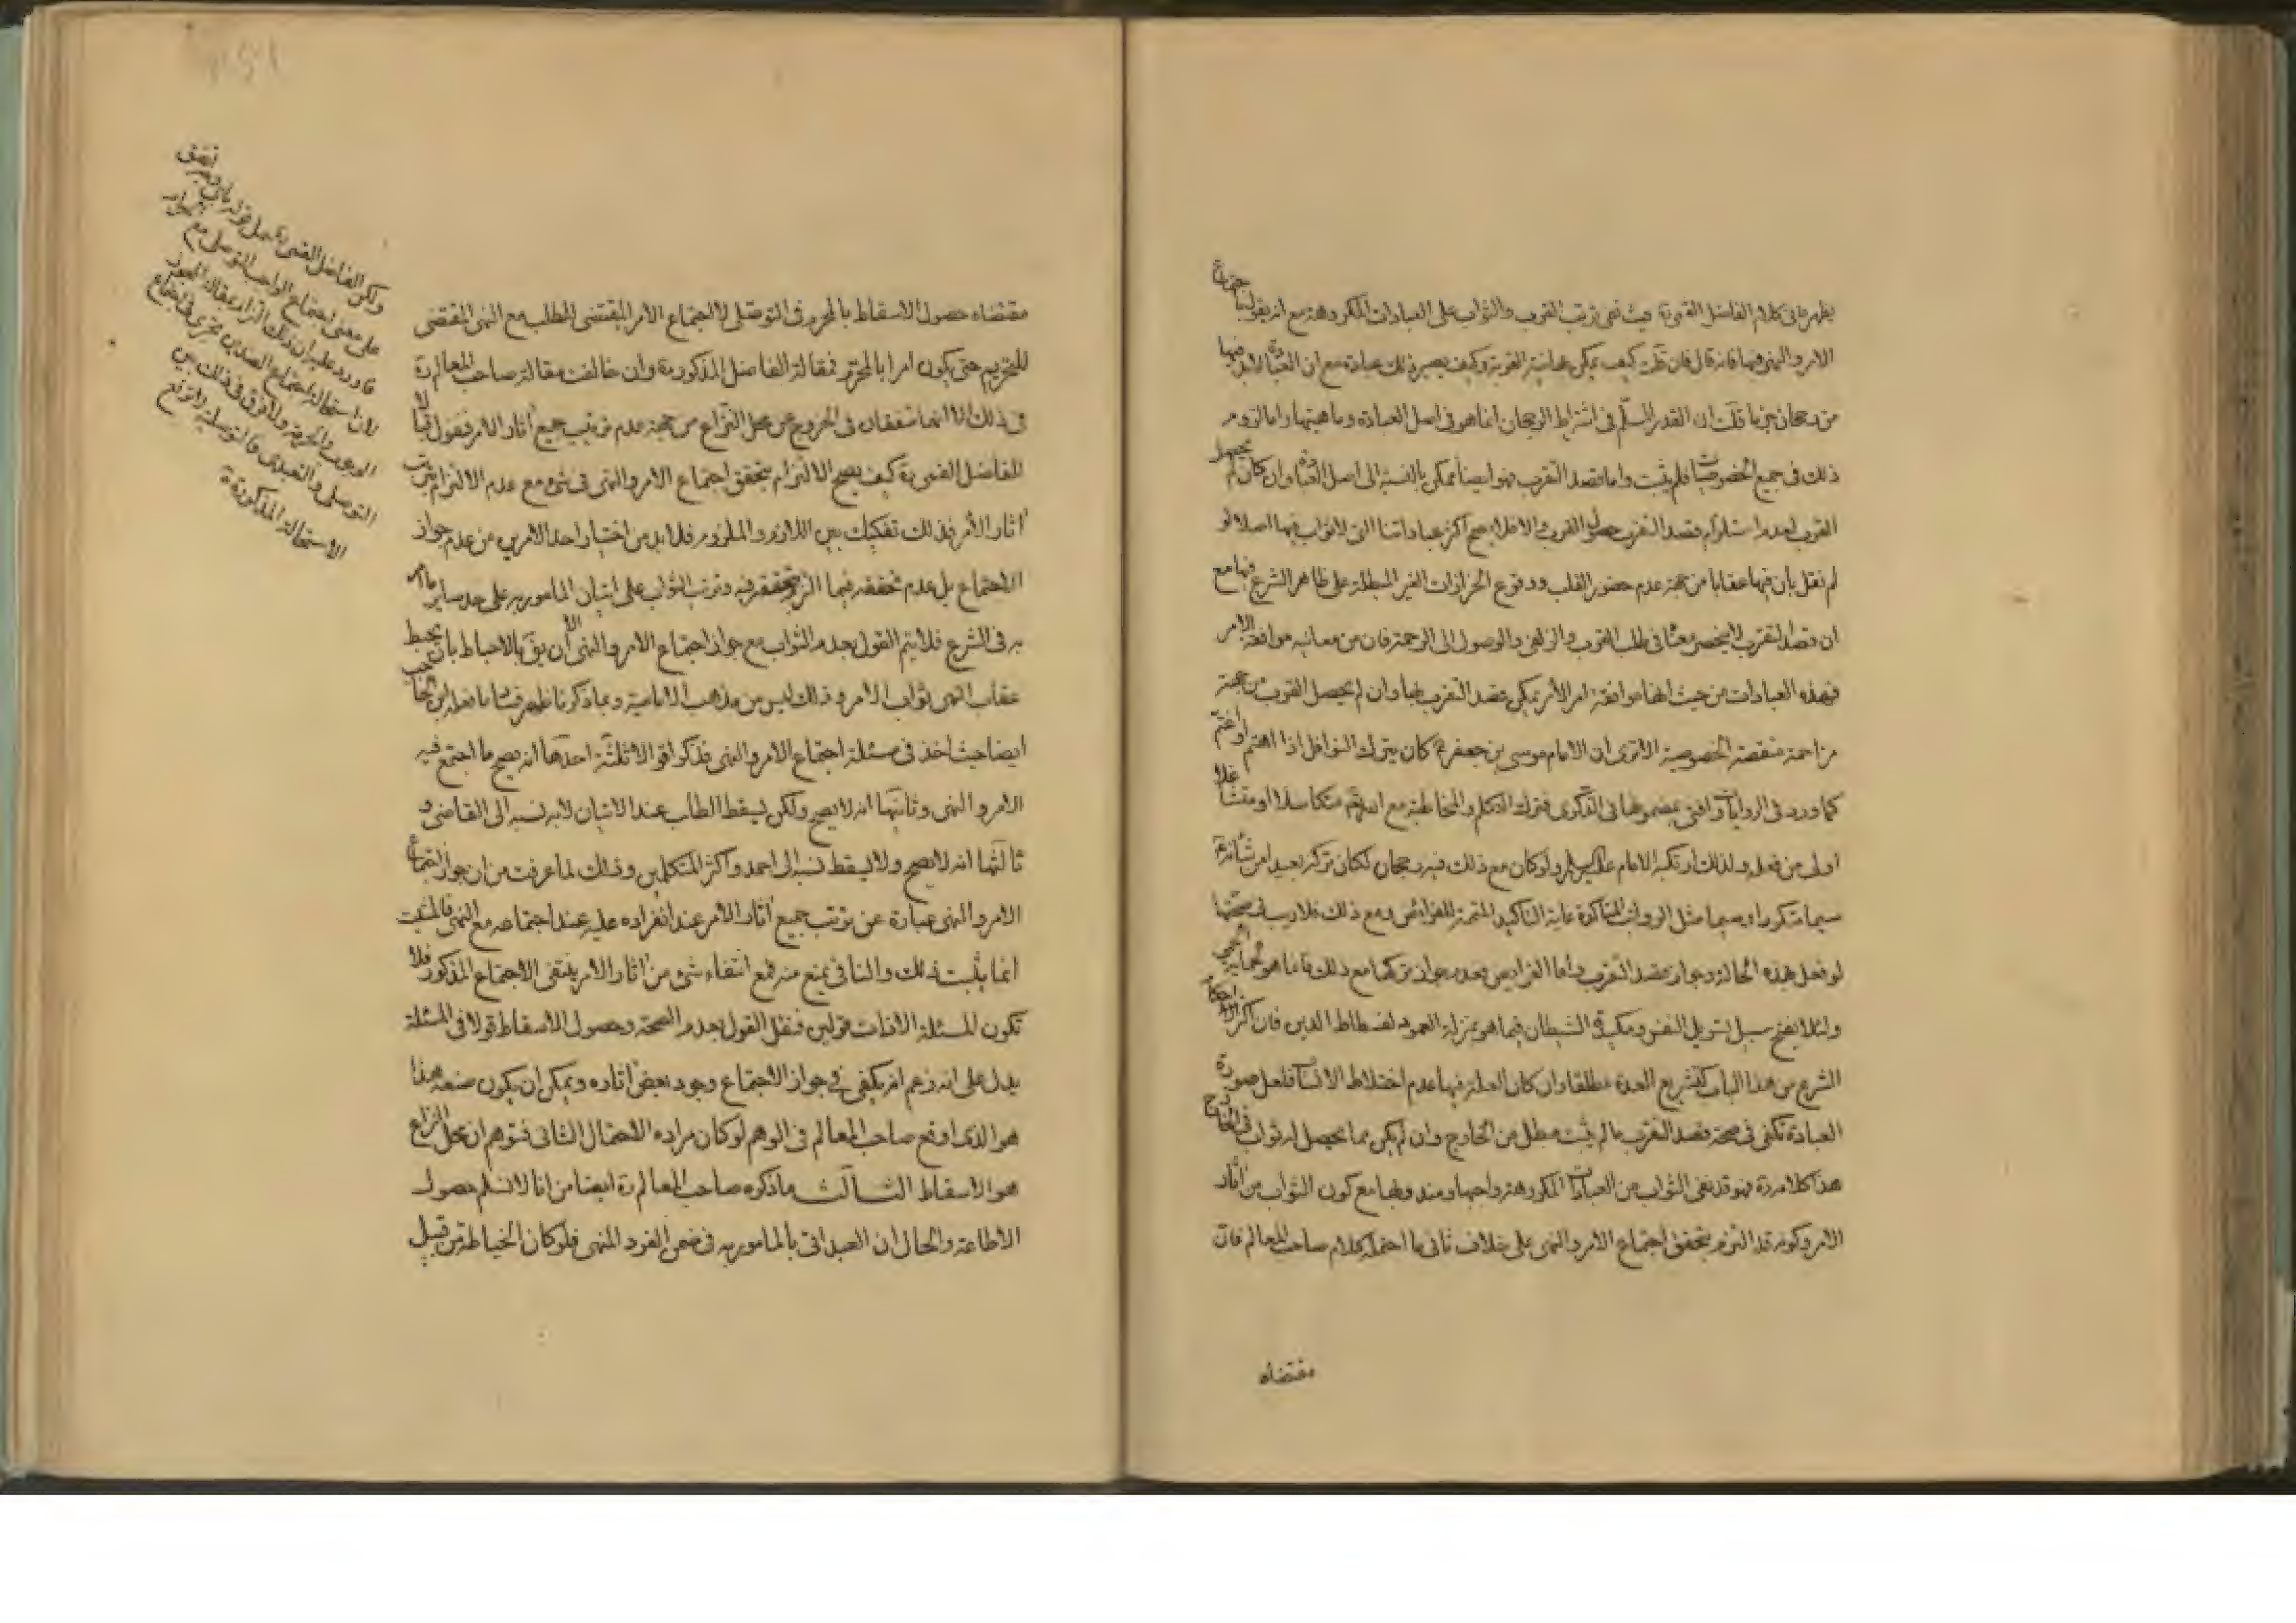 يظهر ما فى كلام الفاضل القمى ره حيث نفى ترتب القرب والثواب على العبادات المكروهة مع انه يقول بجواز اجتماع
الامر والنهى فيها فانه قال فان قلت كيف يمكن نية القربة وكيف يصير ذلك عبادة مع ان العبادة لابد فيها
من رجحان جزما قلت ان القدر المسلم فى اشتراط الرجحان انما هو فى اصل العبادة وماهيتها واما لزوم
ذلك فى جميع الخصوصيات فلم يثبت واما قصد التقرب فهو ايضا ممكن بالنسبة الى اصل العبادة وان كان لم يحصل
القرب لعدم استلزام قصد التقرب حصول القرب والا فلا يصح اكثر عباداتنا التى لا ثواب فيها اصلا لو
لم نقل بان فيها عقابا من جهة عدم حضور القلب ووقوع الحزازات الغير المبطلة على ظاهر الشرع فيها مع
ان قصد التقرب لا ينحصر معناه فى طلب القرب والزلفى والوصول الى الرحمة فان من معانيه موافقة الامر
فهذه العبادات من حيث انها موافقة لامر الآمر يمكن قصد التقرب بها وان لم يحصل القرب من جهة
مزاحمة منقصة الخصوصية الا ترى ان الامام موسى بن جعفر ع كان يترك النوافل اذا اهتم او اغتم
كما ورد فى الروايات وافتى بمضمونها فى الذكرى فترك التكلم والمخاطبة مع الله متكاسلا او متشاغلا
اولى من فعله ولذلك ارتكبه الامام عليه السلام ولو كان مع ذلك فيه رجحان لكان تركه بعيدا من شأنه
سيما متكررا وسيما مثل الرواتب المتأكدة غاية التأكيد المتممة للفرائض ومع ذلك فلا ريب فى صحتها
لو فعل بهذه الحالة وجواز قصد التقرب واما الفرايض فعدم جواز تركها مع ذلك فانما هو لحماية الحمى
ولئلا يفتح سبيل تسويل النفس ومكيدة الشيطان فيما هو بمنزلة العمود لفسطاط الدين فان اكثر احكام
الشرع من هذا الباب كتشريع العدة مطلقا وان كان العلة فيها عدم اختلاط الانساب فلعل صورة
العبادة تكفى فى صحة قصد التقرب ما لم يثبت مبطل من الخارج وان لم يكن مما يحصل له ثواب فى الخارج
هذا كلامه ره فهو قد نفى الثواب من العبادات المكروهة واجبها ومندوبها مع كون الثواب من آثار
الامر وكونه قد التزم بتحقق اجتماع الامر والنهى على خلاف ثانى ما احتمله كلام صاحب المعالم فان
مقتضاه
مقتضاه حصول الاسقاط بالمحرم فى التوصلى لا اجتماع الامر المقتضى للطلب مع النهى المقتضى
للتحريم حتى يكون امرا بالمحرم فمقالة الفاضل المذكور ره وان خالفت مقالة صاحب المعالم ره
فى ذلك الا انهما متفقان فى الخروج عن محل النزاع من جهة عدم ترتيب جميع آثار الامر فنقول
للفاضل القمى ره كيف يصح الالتزام بتحقق اجتماع الامر والنهى فى شىء مع عدم الالتزام بترتب
آثار الأمر فذلك تفكيك بين اللازم والملزوم فلابد من اختيار احد الامرين من عدم جواز
الاجتماع بل عدم تحققه فيما التزم بتحققه فيه وترتب الثواب على اتيان المأمور به على حد ساير ما امر
به فى الشرع فلا يتم القول بعدم الثواب مع جواز اجتماع الامر والنهى الا ان يق بالاحباط بان يحبط
عقاب النهى ثواب الامر وذلك ليس من مذهب الامامية وبما ذكرنا ظهر فساد ما فعله ابن الحاجب
ايضا حيث اخذ فى مسئلة اجتماع الامر والنهى فذكر اقوالا ثلثة احدها انه يصح ما اجتمع فيه
الامر والنهى وثانيها انه لا يصح ولكن يسقط الطلب عند الاتيان لا به نسبه الى القاضى و
ثالثها انه لا يصح ولا يسقط نسبه الى احمد واكثر المتكلمين وذلك لما عرفت من ان جواز اجتماع
الامر والنهى عبارة عن ترتب جميع آثار الامر عند انفراده عليه عند اجتماعه مع النهى فالمثبت
انما يثبت ذلك والنافى يمنع منه فمع انتفاء شىء من آثار الامر ينتفى الاجتماع المذكور فلا
تكون للمسئلة الا ذات قولين فنقل القول بعدم الصحة وحصول الاسقاط قولا فى المسئلة
يدل على انه زعم انه يكفى فى جواز الاجتماع وجود بعض آثاره ويمكن ان يكون صنعه هذا
هو الذى اوقع صاحب المعالم فى الوهم لو كان مراده الاحتمال الثانى فتوهم ان محل النزاع
هو الاسقاط الثالث ما ذكره صاحب المعالم ره ايضا من انا لا نسلم حصول
الاطاعة والحال ان العبد اتى بالمامور به فى ضمن الفرد المنهى فلو كان الخياطة من قبيل
ولكن الفاضل القمى ره حمل قوله
على معنى اجتماع الواجب التوصلى مع
فاورد عليه ان ذلك
لان استحالة اجتماع الضدين تجرى فى اجتماع
الوجوب والحرمة ولا فرق فى ذلك بين
التوصلى والتعبدى
الاستحالة المذكورة